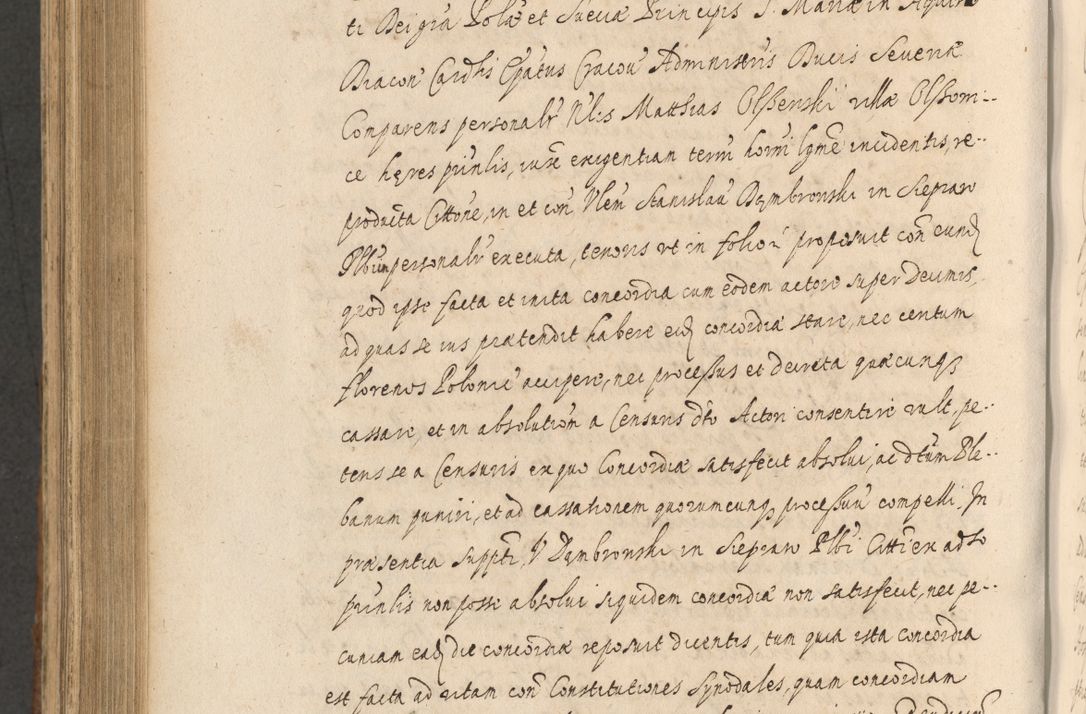 ti Dei gra Polæ et Sueciæ Principis S. Mariæ in Aquiro
Diacon Cardlis Epatus Cracou Administris Ducis Severiæ
Comparens personalr Nlis Matthias Olssenski villæ Olssoni--
ce hęres prnlis, iure exigentian term horni lgme incidentis, re--
produita Cittone, in et con Vlem Stanislau Dąmbrowski in Siepraw
Plbum personalr executa, tenoris ut in folio proposuit con eund
quod ipse facta et inita concordia cum eodem actore super Decimis,
ad quas se ius prætendit habere eid concordiæ stare, nec centum
florenos Polonic accipere, nec processus et decreta quæcunq
cassare, et in absolution a Censuris dto Actori consentire vult, pe--
tens se a Censuris ex quo Concordiæ satisfecit absolui, ac dtum Ple--
banum puniri, et ad cassationem quorumcunq processuu compelli. In
præsentia suppti V Dąmbrowski in Siepraw Plbi Citti ex adto
prinlis non posse absolui siquidem concordiæ non satisfecit, nec pe--
cuniam ead die concordiæ reposuit dicentis, tum quia ista concordia
est facta ad vitam con Constitutiones Synodales, quam concordiam